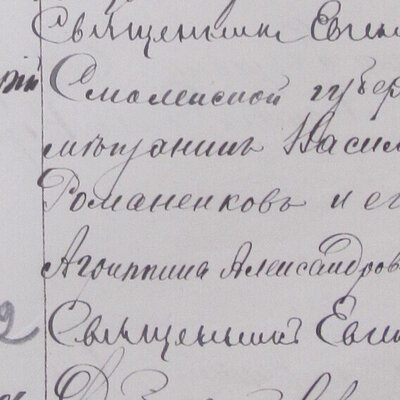 Священникъ Евген
рій Смоленской губер
мѣщанинъ Васил
Романенковъ и ег
Агриппина Александров
2 Священникъ Евген